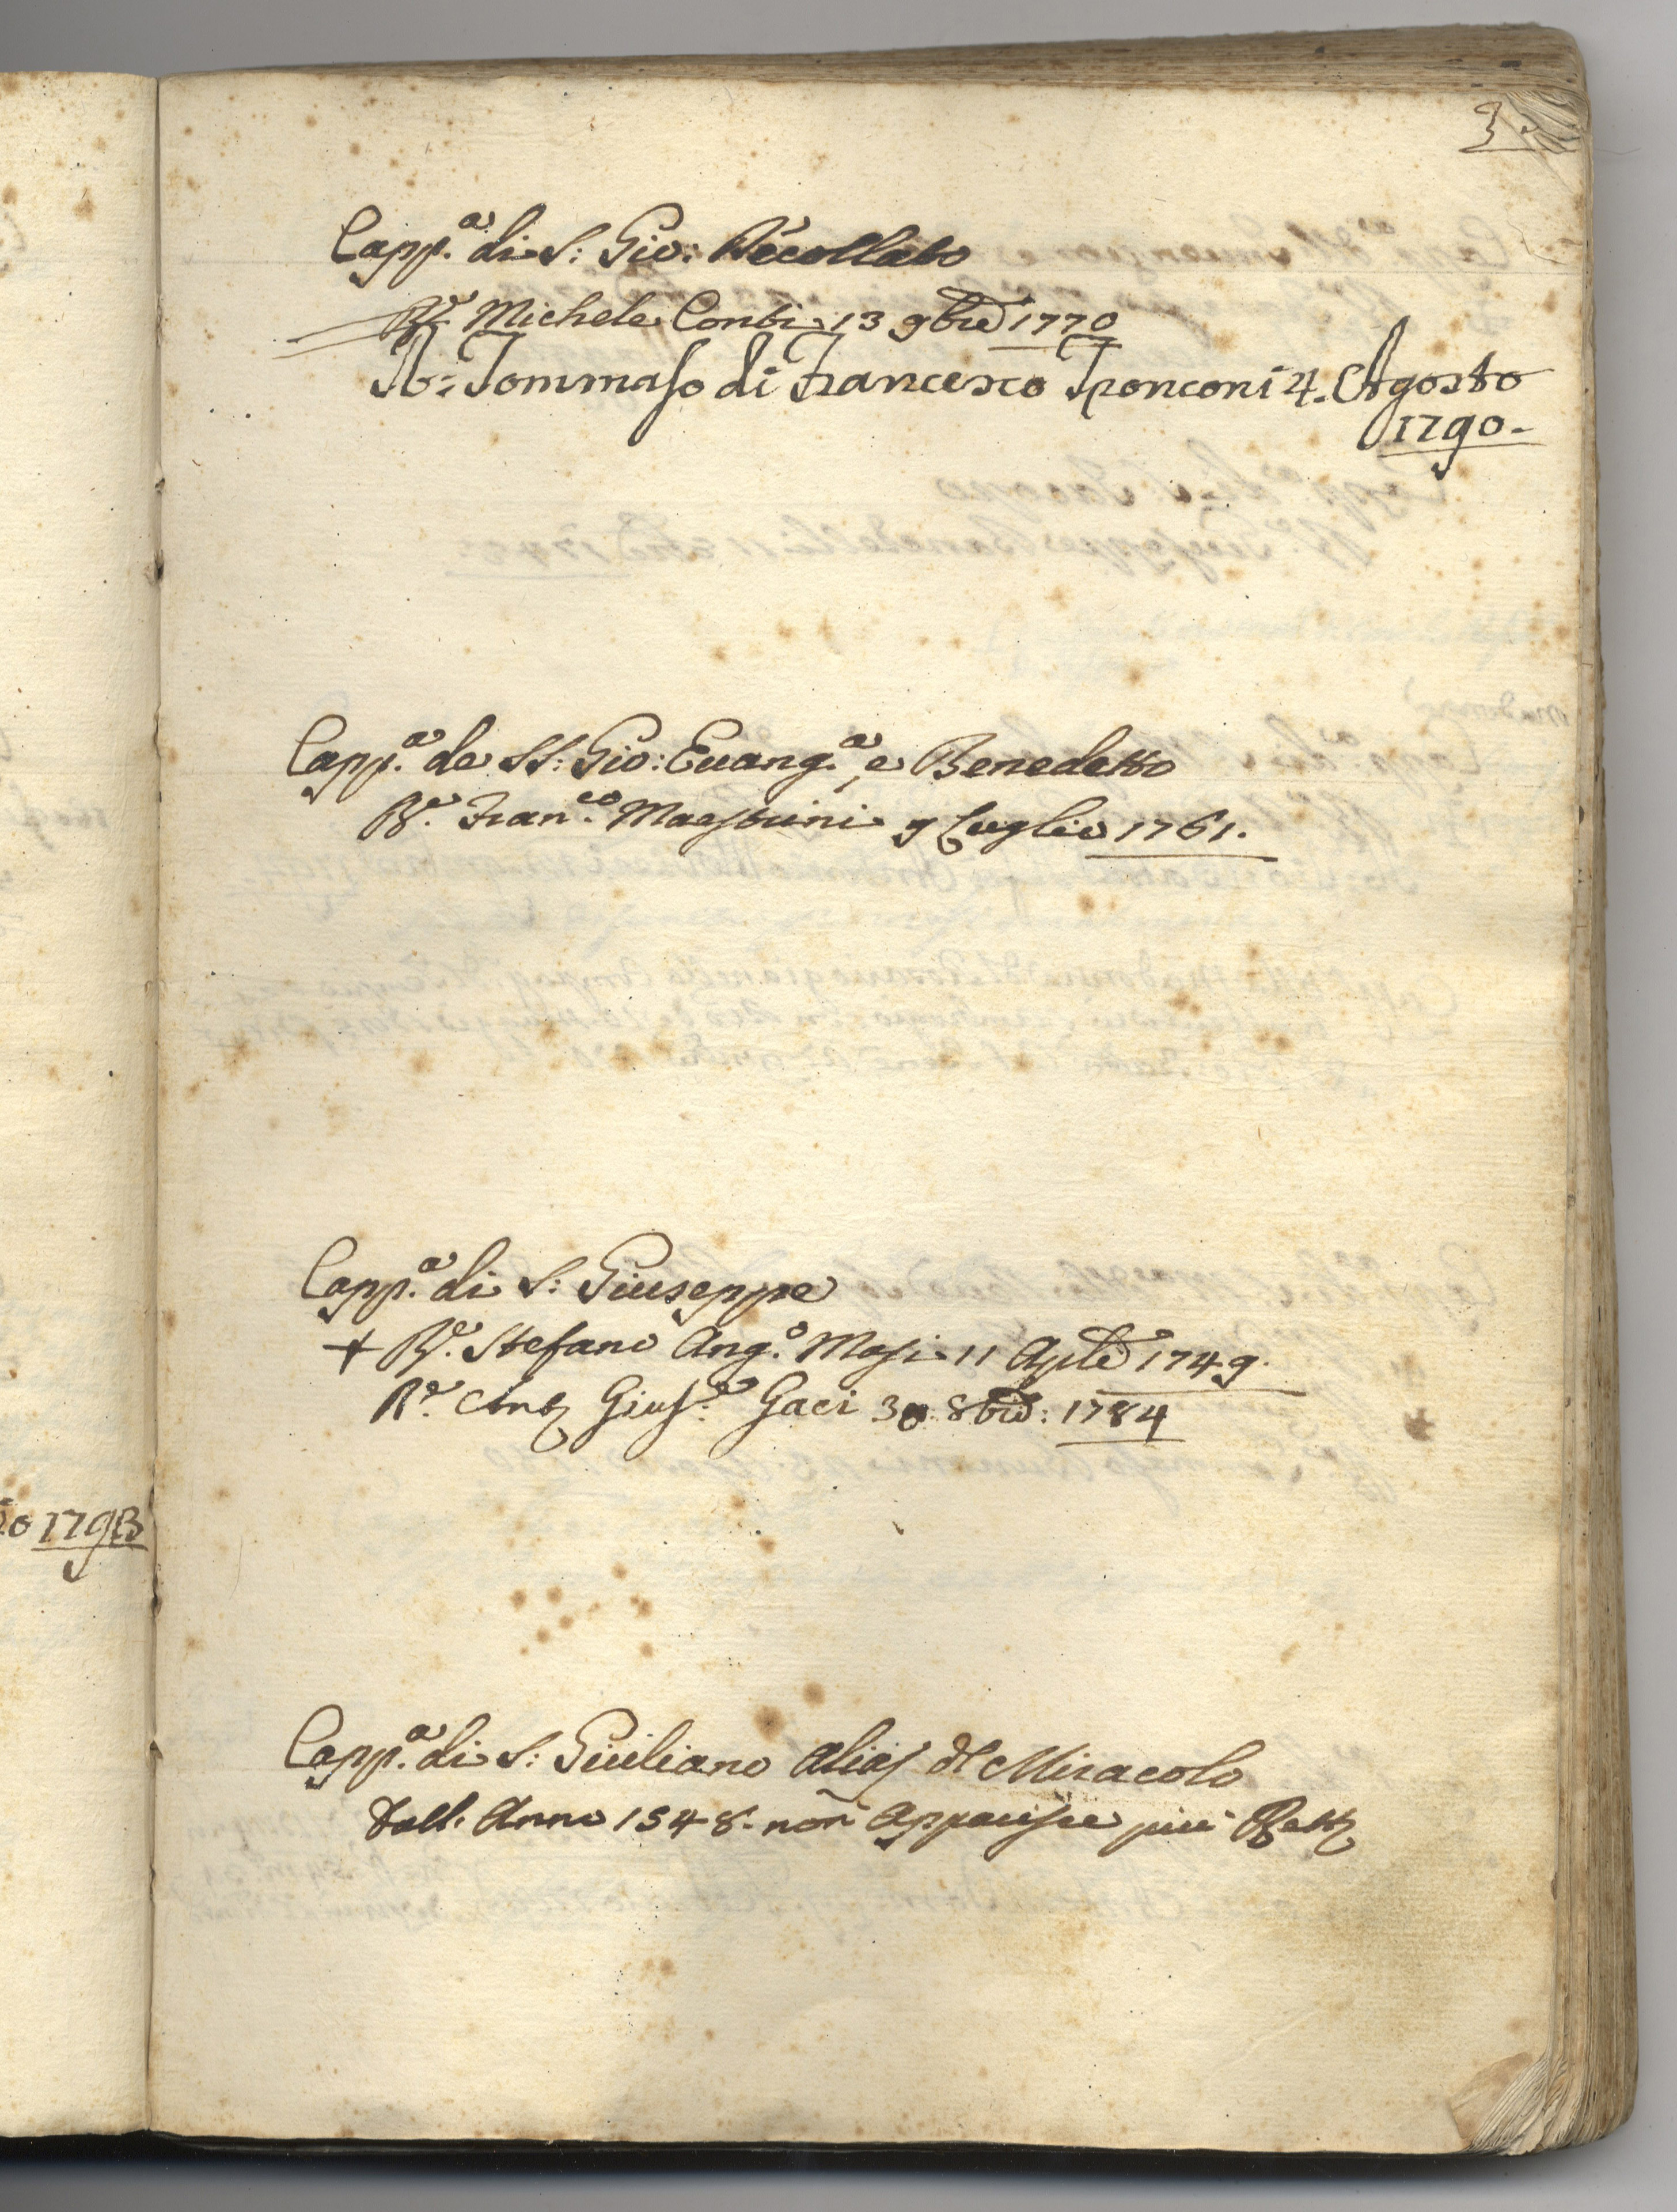 3
Capp.a di S: Gio: Decollato
R.e Michele Conti 13 9bre 1770
R: Tommaso di Francesco Tronconi 4. Agosto
1790.
Capp.a de SS: Gio: Evang.a, e Benedetto
R.e Fran.co Maestrini 9 Luglio 1761.
Capp.a di S: Giuseppe
+ R.e Stefano Ang.o Masi 11 Aple 1749.
R.e Ant Gius.e Gaci 30 8bre: 1784
o 1793
Capp.a di S: Giuliano alias del Miracolo
dall. Anno 1548. non apparisce più